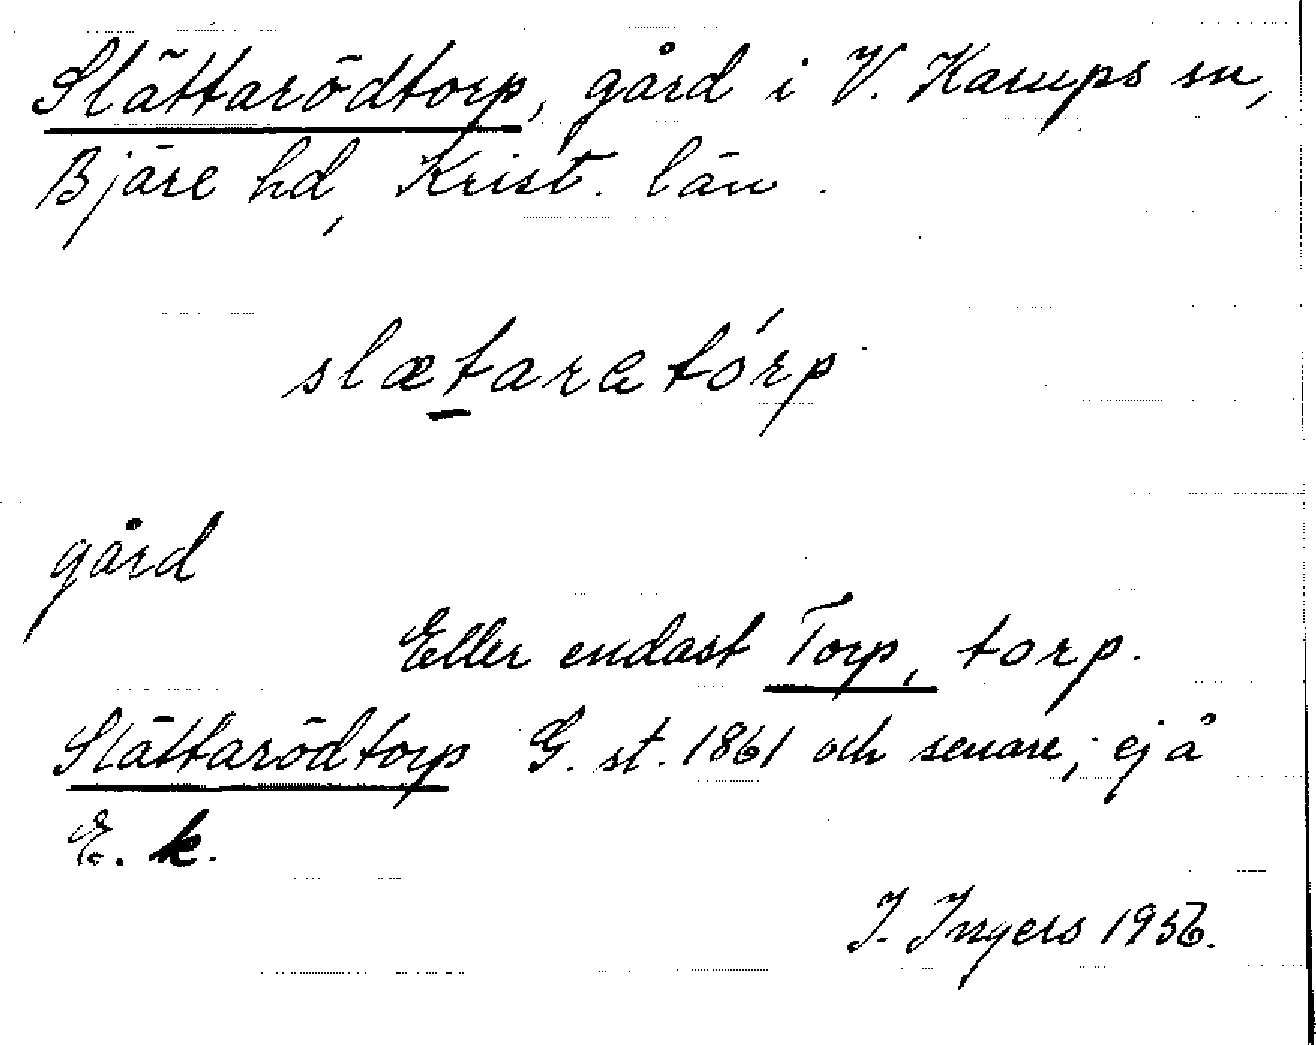 Slättarödtorp, gård i V. Karups sn,
Bjäre hd, Krist. län.
slætaratórp
gård
Eller endast Torp, torp.
Slättarödtorp G. st. 1861 och senare, ej å
E. k.
I. Ingers 1956.